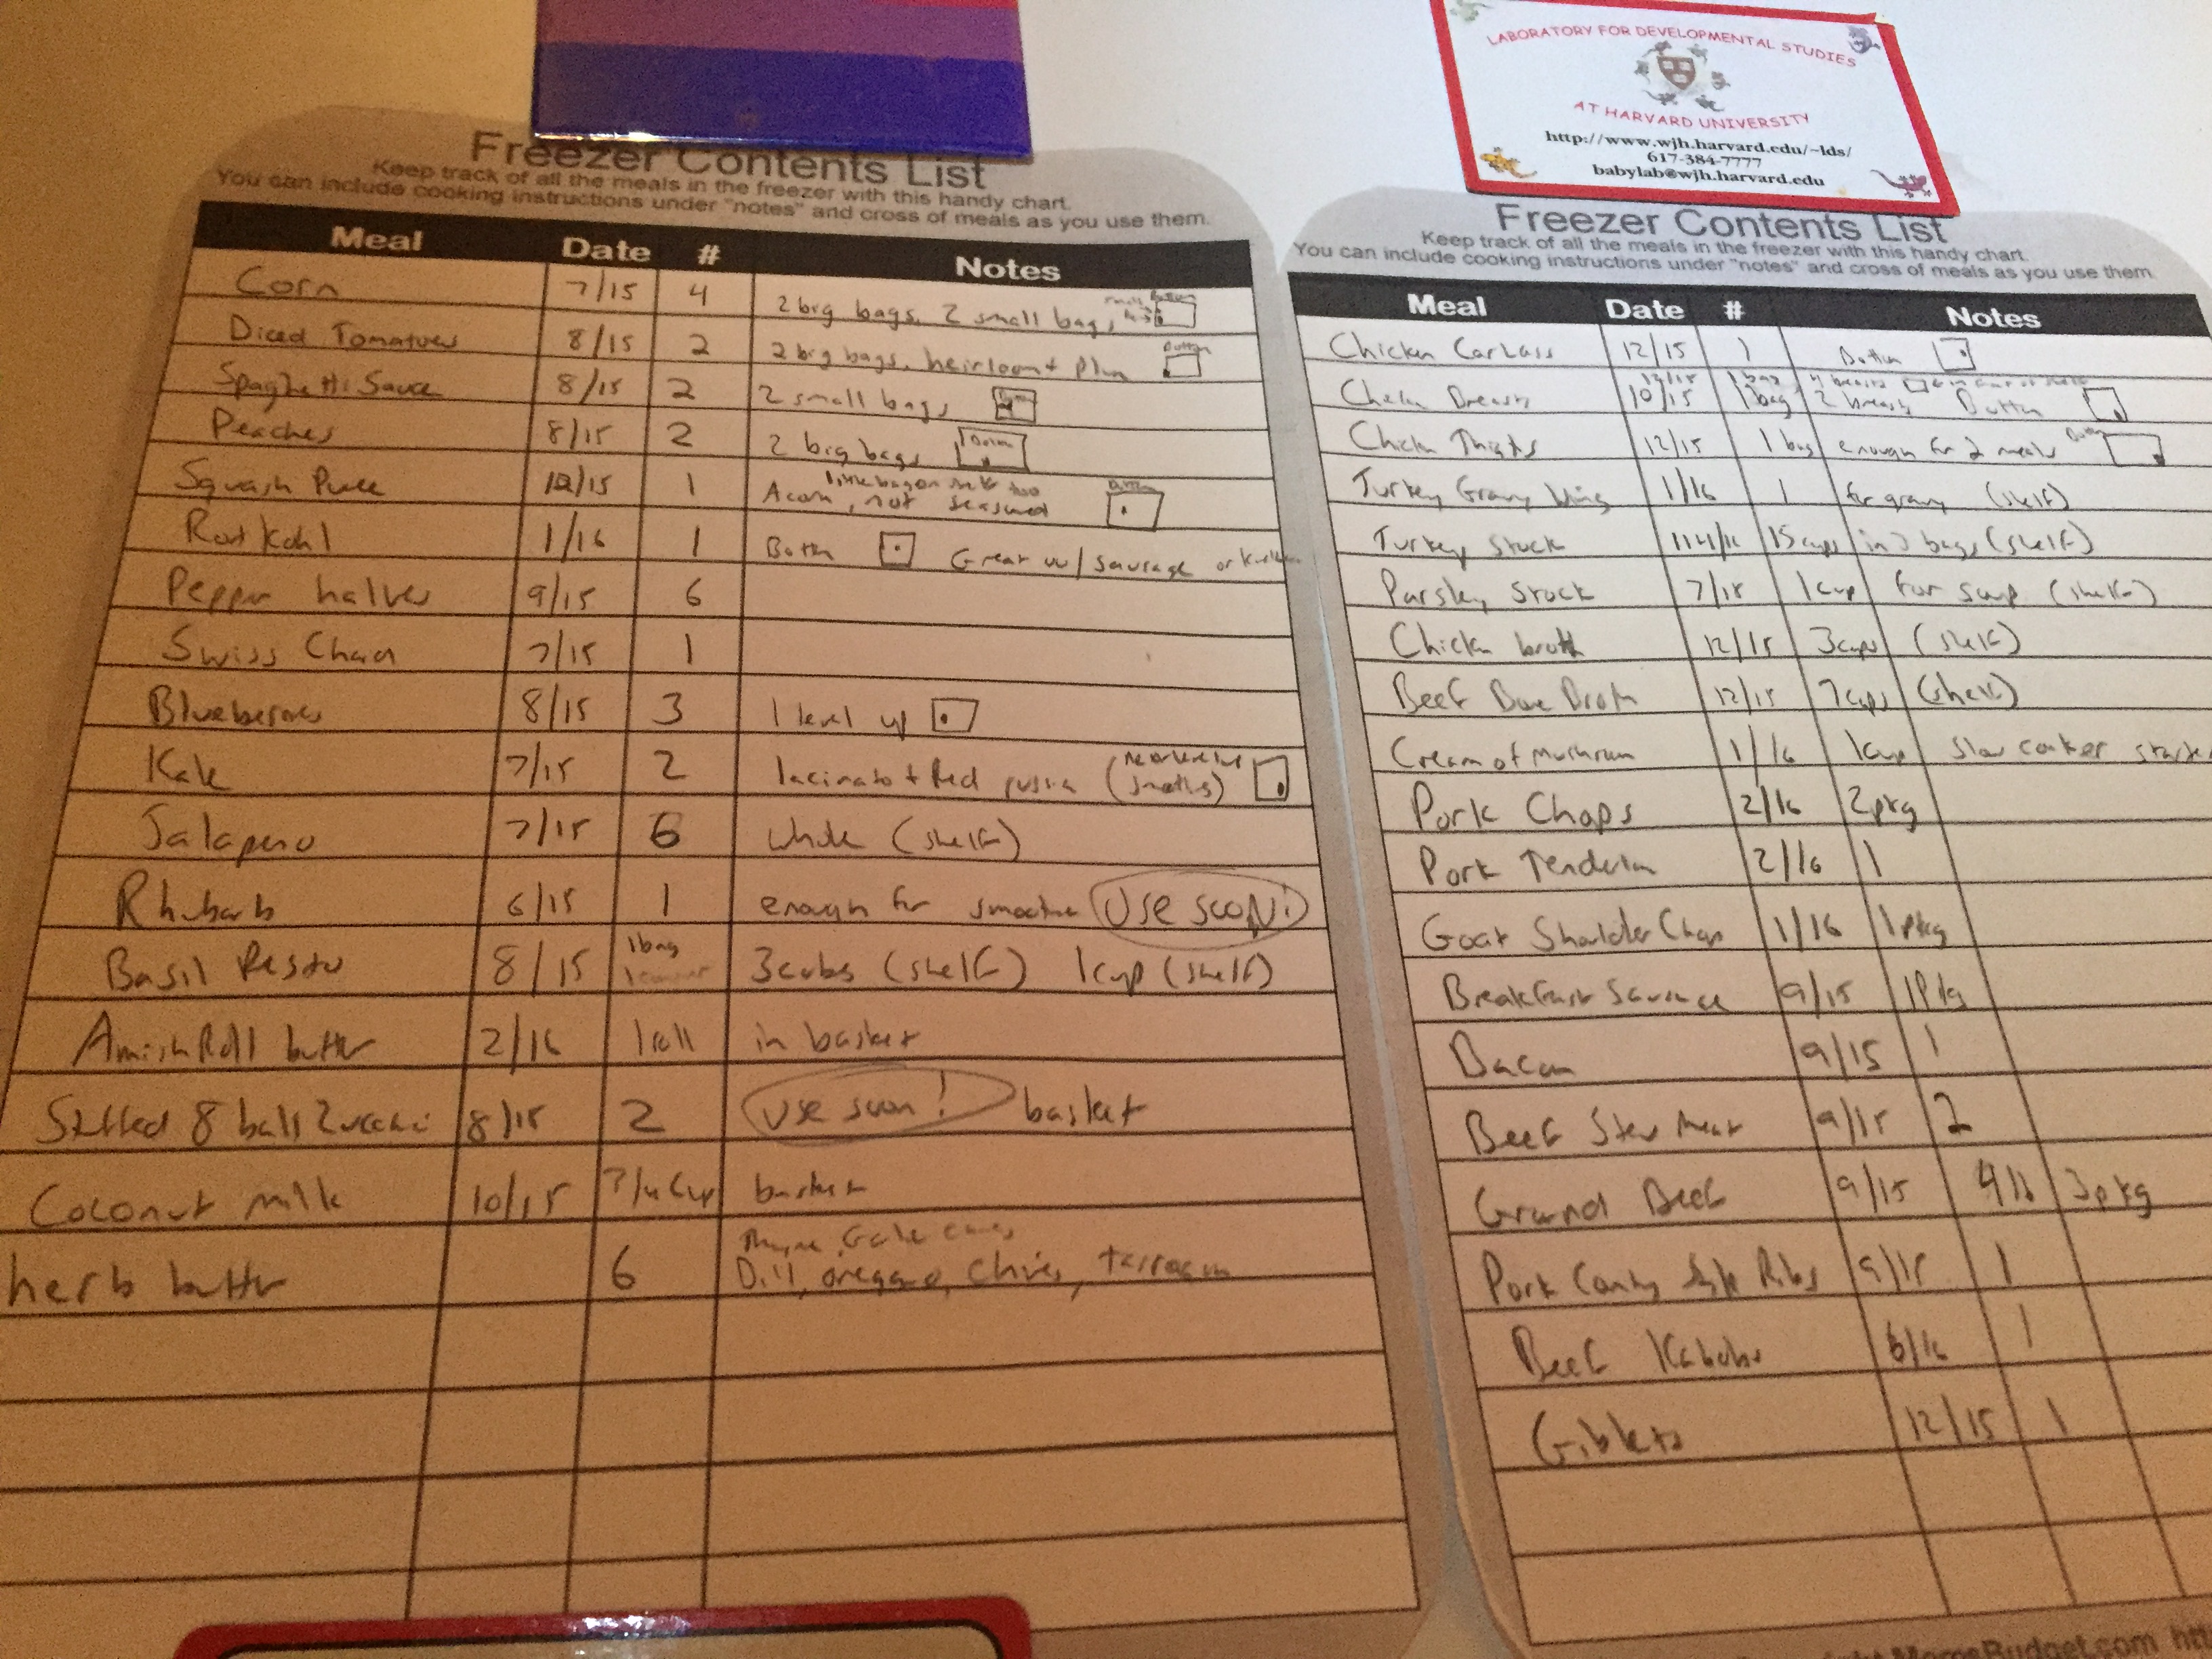 LABORATORY FOR DEVELOPMENTAL STUDIES
AT HARVARD UNIVERSITY
http://www.wjh.harvard.edu/~lds/
617-384-7777
babylab@wjh.harvard.edu
Freezer Contents List
Keep track of all the meals in the freezer with this handy chart.
You can include cooking instructions under "notes" and cross of meals as you use them.
Meal Date # Notes
Corn 7/15 4 2 big bags, 2 small bags
Diced Tomatoes 8/15 2 2 big bags, heirloom + plum Bottom
Spaghetti Sauce 8/15 2 2 small bags
Peaches 8/15 2 2 big bags Bottom
little bag on shelf too
Squash Puree 12/15 1 Acorn, not seasored Bottom
Rotkohl 1/16 1 Bottom Great w/ sausage or
Pepper halves 9/15 6
Swiss Chard 7/15 1
Blueberries 8/15 3 1 level up
Kale 7/15 2 lacinato + Red russian
Jalapeno 7/15 6 whole (shelf)
Rhubarb 6/15 1 enough for smoothie Use soon!
Basil Pesto 8/15 1 bag 3 cubs (shelf) 1 cup (shelf)
Amish Roll butter 2/16 1 roll in basket
Stuffed 8 ball Zucchini 8/15 2 Use soon! basket
Coconut milk 10/15 3/4 Cup basket
Thyme, Garlic chives
herb butter 6 Dill, oregano, Chives, tarragon
Freezer Contents List
Keep track of all the meals in the freezer with this handy chart.
You can include cooking instructions under "notes" and cross of meals as you use them.
Meal Date # Notes
Chicken Carcass 12/15 1 Bottom
12/15 1 bag 4 breasts
Chicken Breasts 10/15 1 bag 2 breasts Bottom
Chicken Thighs 12/15 1 bag enough for 2 meals Bottom
Turkey Gravy Wing 1/16 1 for gravy (shelf)
Turkey Stock 15 cups in 3 bags (shelf)
Parsley Stock 7/15 1 cup for soup (shelf)
Chicken broth 12/15 3 cups (shelf)
Beef Bone Broth 12/15 7 cups (shelf)
Cream of Mushroom 1/16 1 cup Slow cooker
Pork Chops 2/16 2 pkg
Pork Tenderloin 2/16 1
Goat Shoulder Chops 1/16 1 pkg
Breakfast Sausage 9/15 1 Pkg
Bacon 9/15 1
Beef Stew Meat 9/15 2
Ground Beef 9/15 4 lb 3 pkg
Pork Country Style Ribs 9/15 1
Beef Kabobs 6/16 1
Giblets 12/15 1